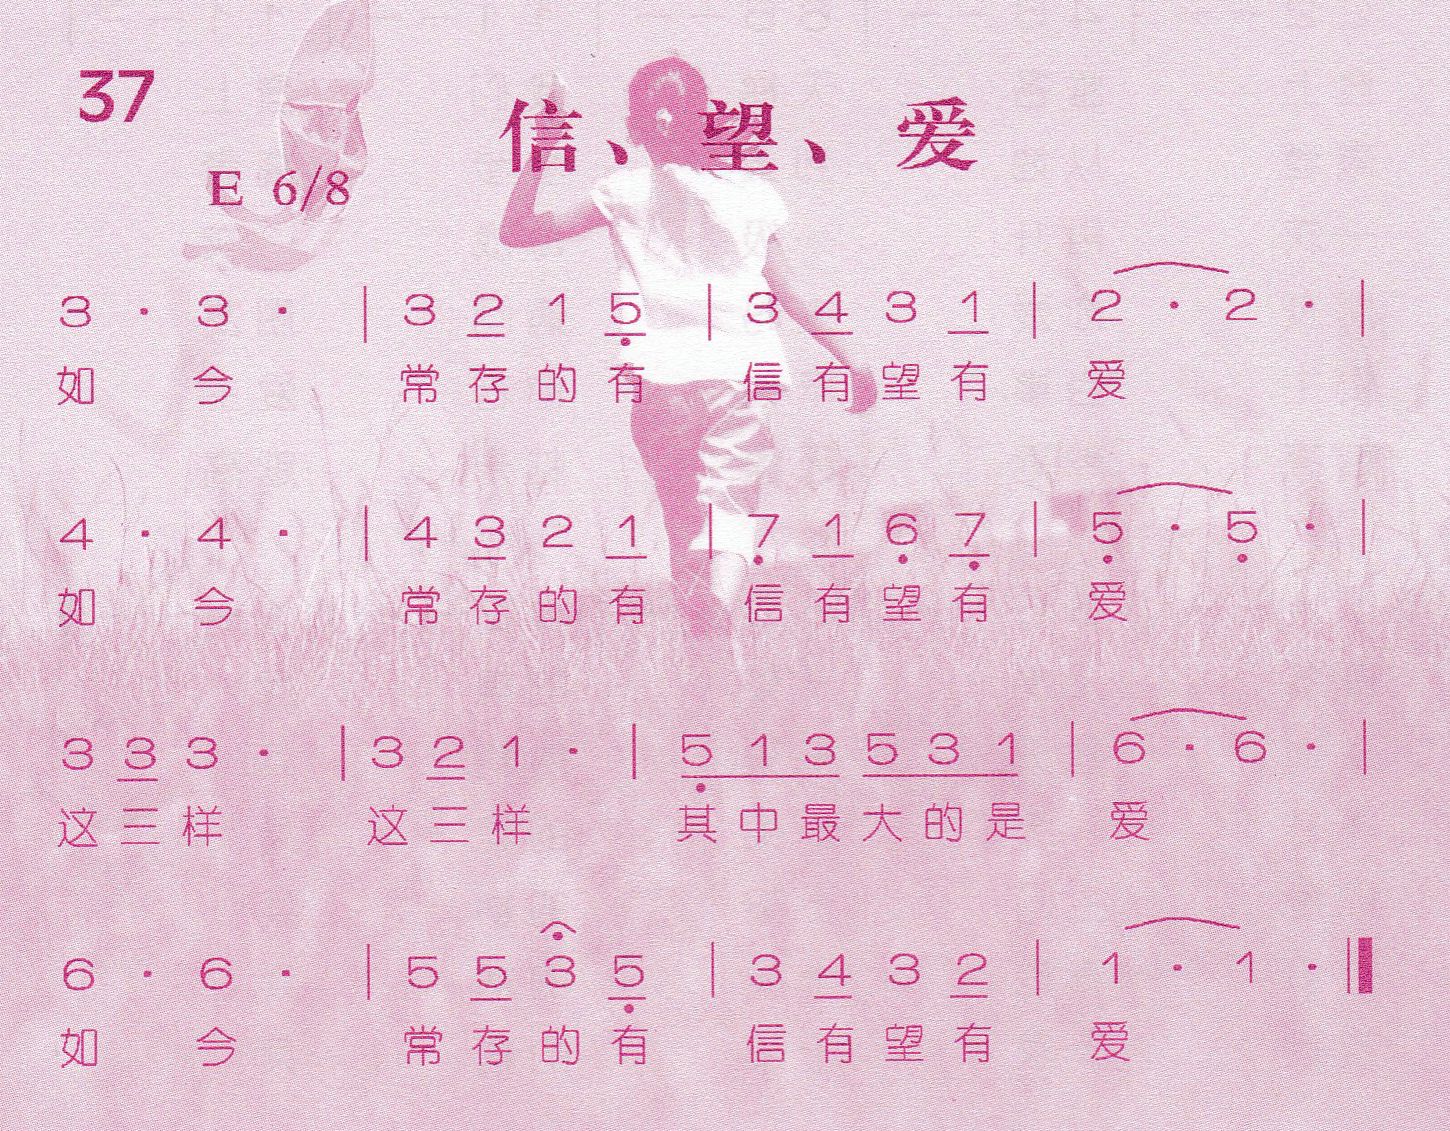 37
信、望、爱
E 6/8
3 · 3 · | 3 2 1 5 | 3 4 3 1 | 2 · 2 · |
如 今 常 存 的 有 信 有 望 有 爱
4 · 4 · | 4 3 2 1 | 7 1 6 7 | 5 · 5 · |
如 今 常 存 的 有 信 有 望 有 爱
3 3 3 · | 3 2 1 · | 5 1 3 5 3 1 | 6 · 6 · |
这 三 样 这 三 样 其 中 最 大 的 是 爱
6 · 6 · | 5 5 3 5 | 3 4 3 2 | 1 · 1 · ‖
如 今 常 存 的 有 信 有 望 有 爱